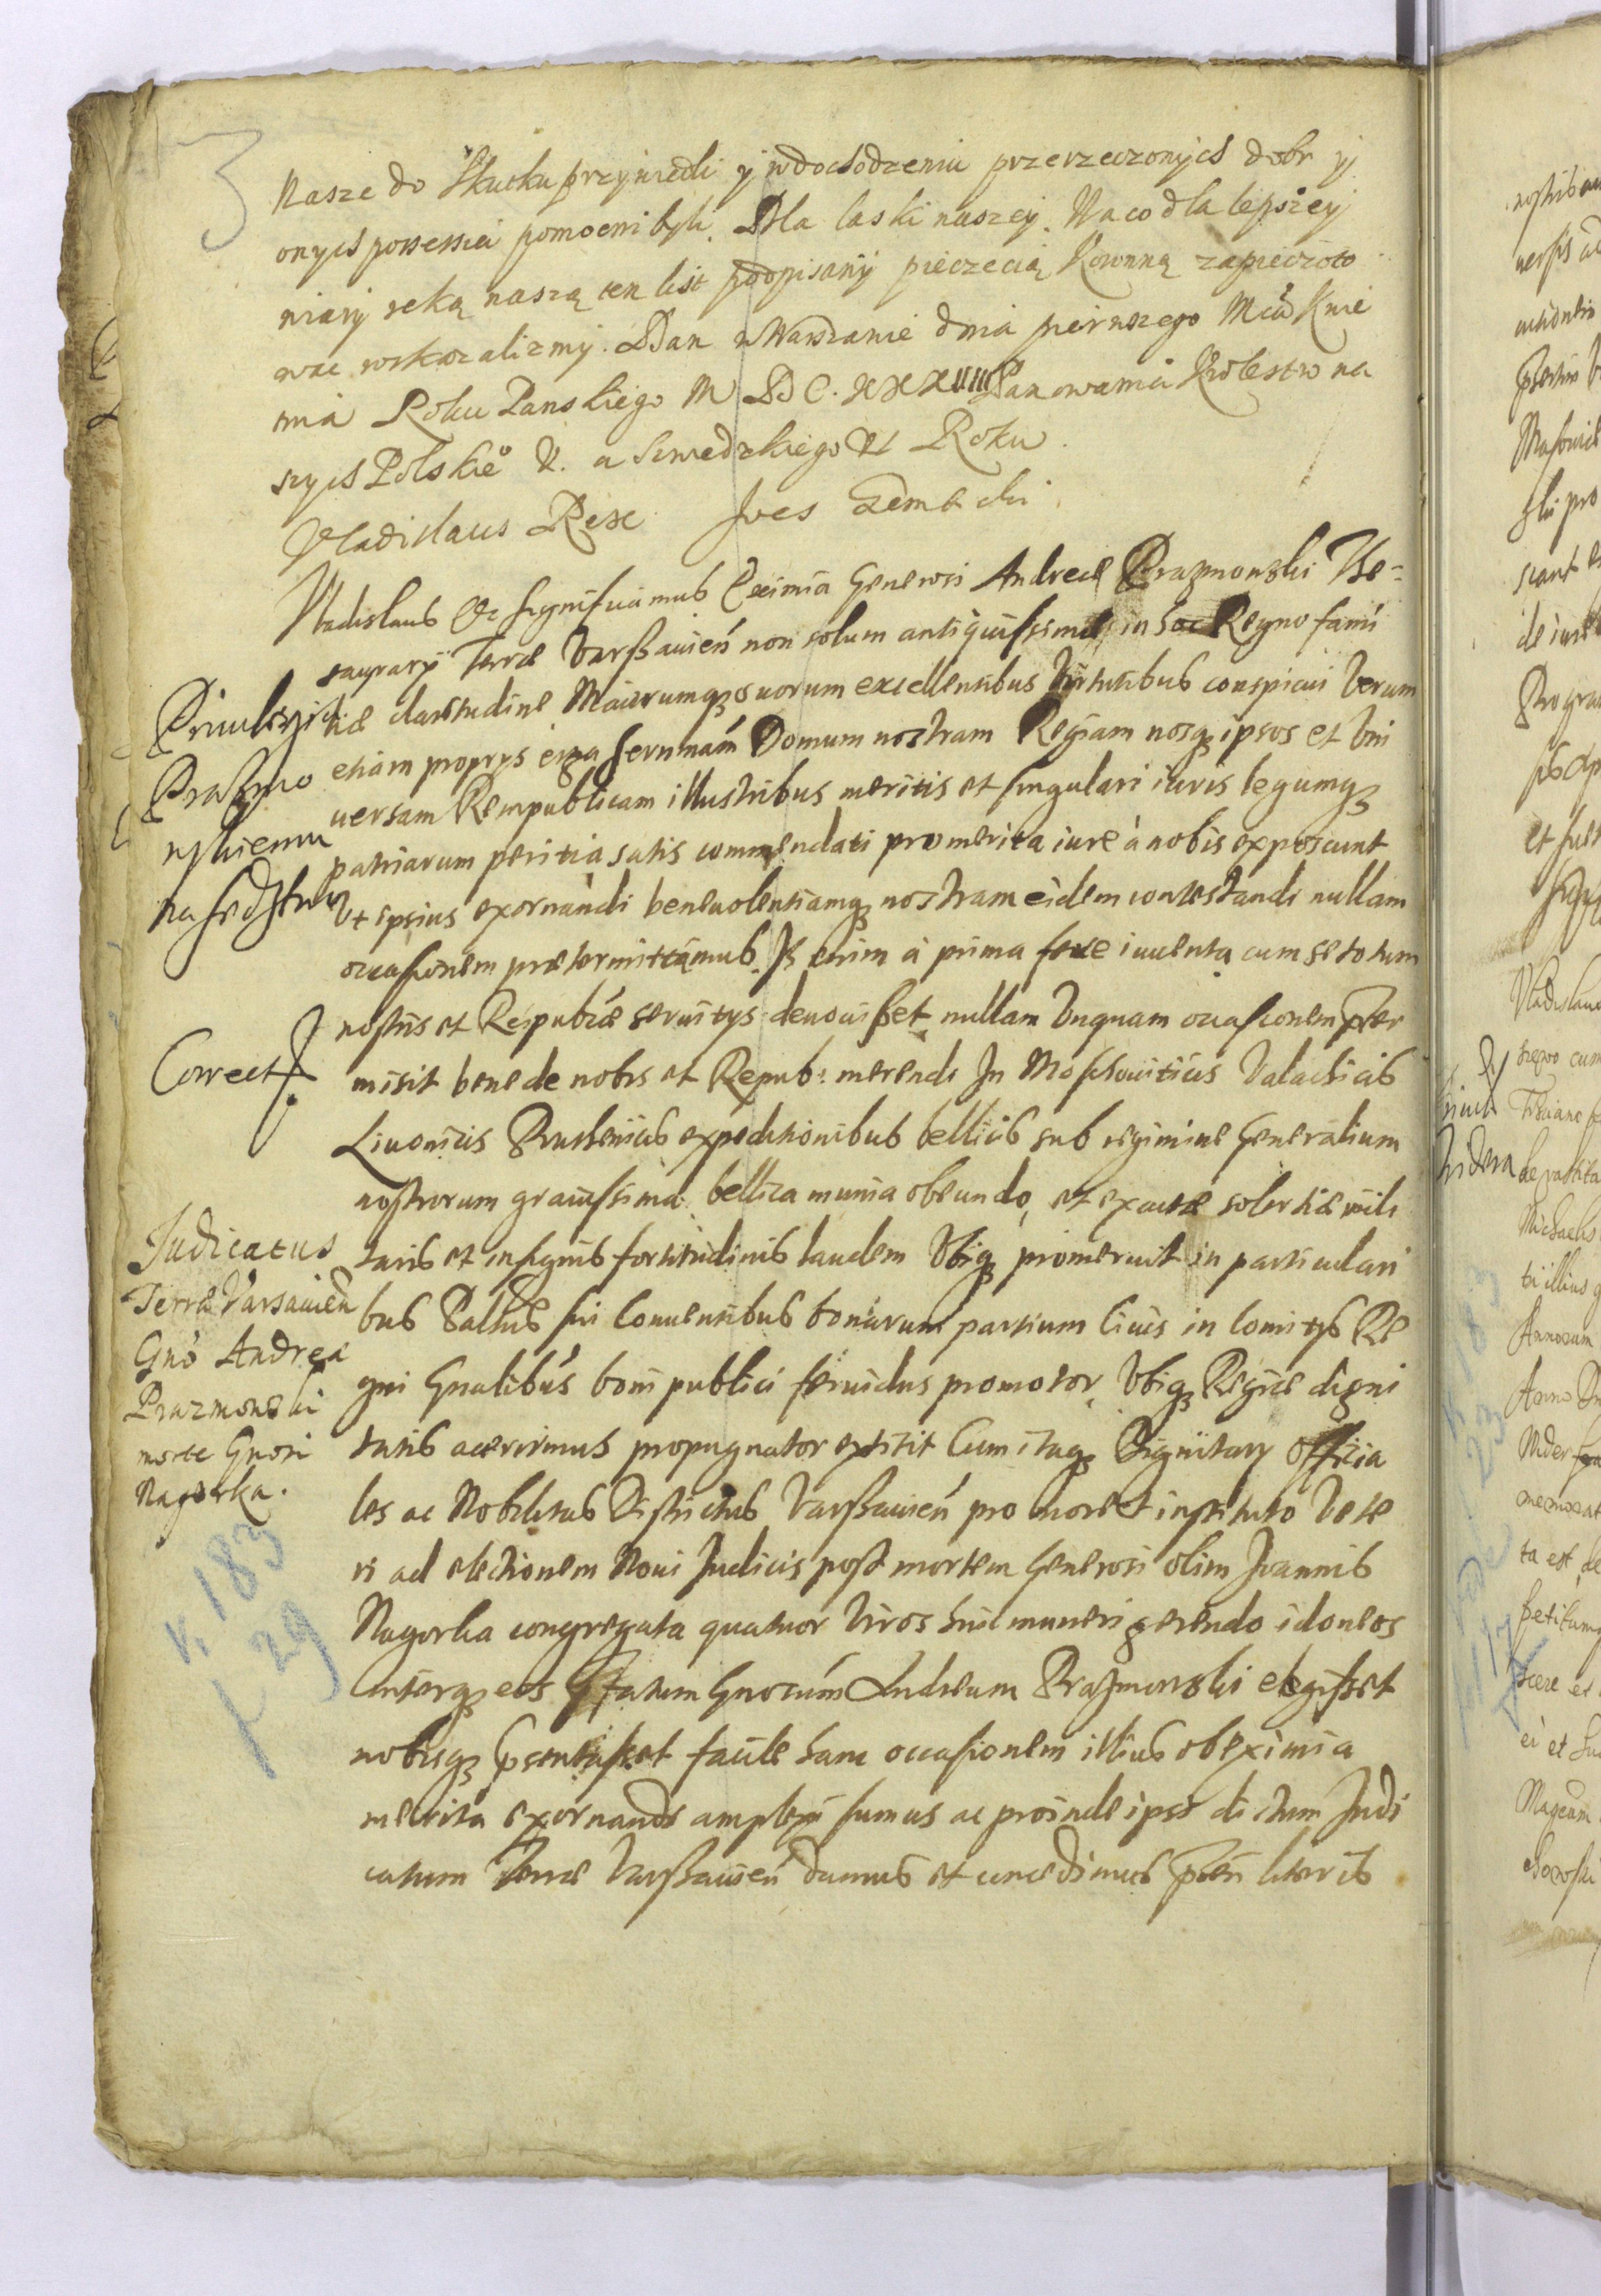 3
Nasze do skutku przywiedli y w dochodzeniu przerzeczonych dobr y
onych possessiei pomocni byli. Dla łaski naszey. Na co dla lepszey
wiary ręką naszą ten list podpisany pieczęcią Koronną zapieczęto
wac roskazalismy. Dan w Warszawie dnia pierwszego Mca Kwie
tnia Roku Panskiego M DC. XXXVIIII Panowania Krolestw na
szych Polskieo V. a Szwedzkiego VI Roku.
Vladislaus Rex Joes Gembicki
Vladislaus &c significamus Eximia Generosi Andreae Prazmowski The-
saurarÿ Terrae Varssauień non solum antiquissimae in hac Regno fami
liae claritudine Maiorumq; suorum excellentibus virtutibus conspicui Verum
etiam proprÿs erga serenmam Domum nostram Regiam nosq; ipsos et Vni
uersam Rempublicam illustribus meritis et singulari iuris legumq;
patriarum peritia satis commendati promerita iure à nobis exposcunt
Vt ipsius exornandi beneuolentiamq; nostram eidem contestandi nullam
occasionem praetermittamus. Is enim à prima fere iuuenta cum se totum
nostris et Reipublicae seruitys deuouisset nullam Vnquam occasionem praeter
misit bene de nobis et Repub: merendi In Moschouiticis Valachicis
Liuonicis Prussenicis expeditionibus bellicis sub regimine Generalium
nostrorum grauissima bellica munia obeundo, et exactae solertiae mili
taris et insignis fortitudinis laudem Vbiq; promeruit in particulari
bus Palthus sui Conuentibus bonarum partium Ciuis in Comitÿs Re
gni Gnalibus boni publici feruidus promotor, Vbiq; Regiae digni
tatis acerrimus propugnator extitit Cum itaq; Dignitary Officia
les ac Nobilitas Districtus Varssauień pro more et instituto Vete
ri ad electionem Noui Judicis post mortem Generosi olim Joannis
Nagorka congregata quatuor Viros huic muneri gerendo idoneos
Interq; eos Gnosum Andream Prazmowski elegisset
nobisq; psentasset facile hanc occasionem illius ob eximia
merita exornandi amplexi sumus ac proinde ipsi dictum Judi
catum Terrae Varssauień damus et concedimus pntibus literis
Priuilegium
Prazmo
wskiemu
na sędstwo
Correct
Judicatus
Terrae Varsauień
Gnò Andreae
Prazmowski
morte Gnosi
Nagorka.
K. 183
f 29